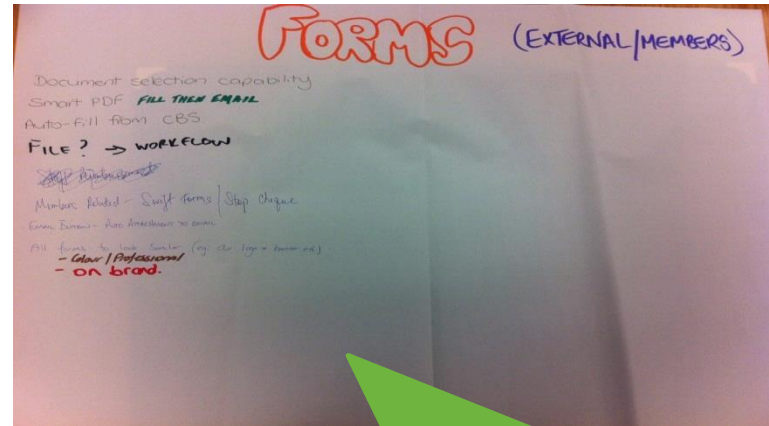 FORMS (EXTERNAL/MEMBERS)
Document selection capability
Smart PDF FILL THEN EMAIL
Auto-Fill from CBS
FILE? → WORKFLOW
Members Related - Swift Forms / Stop Cheque
Email Button - Auto Attachment to email
All forms to look similar (eg Our logo +
- Colour / Professional
- on brand.